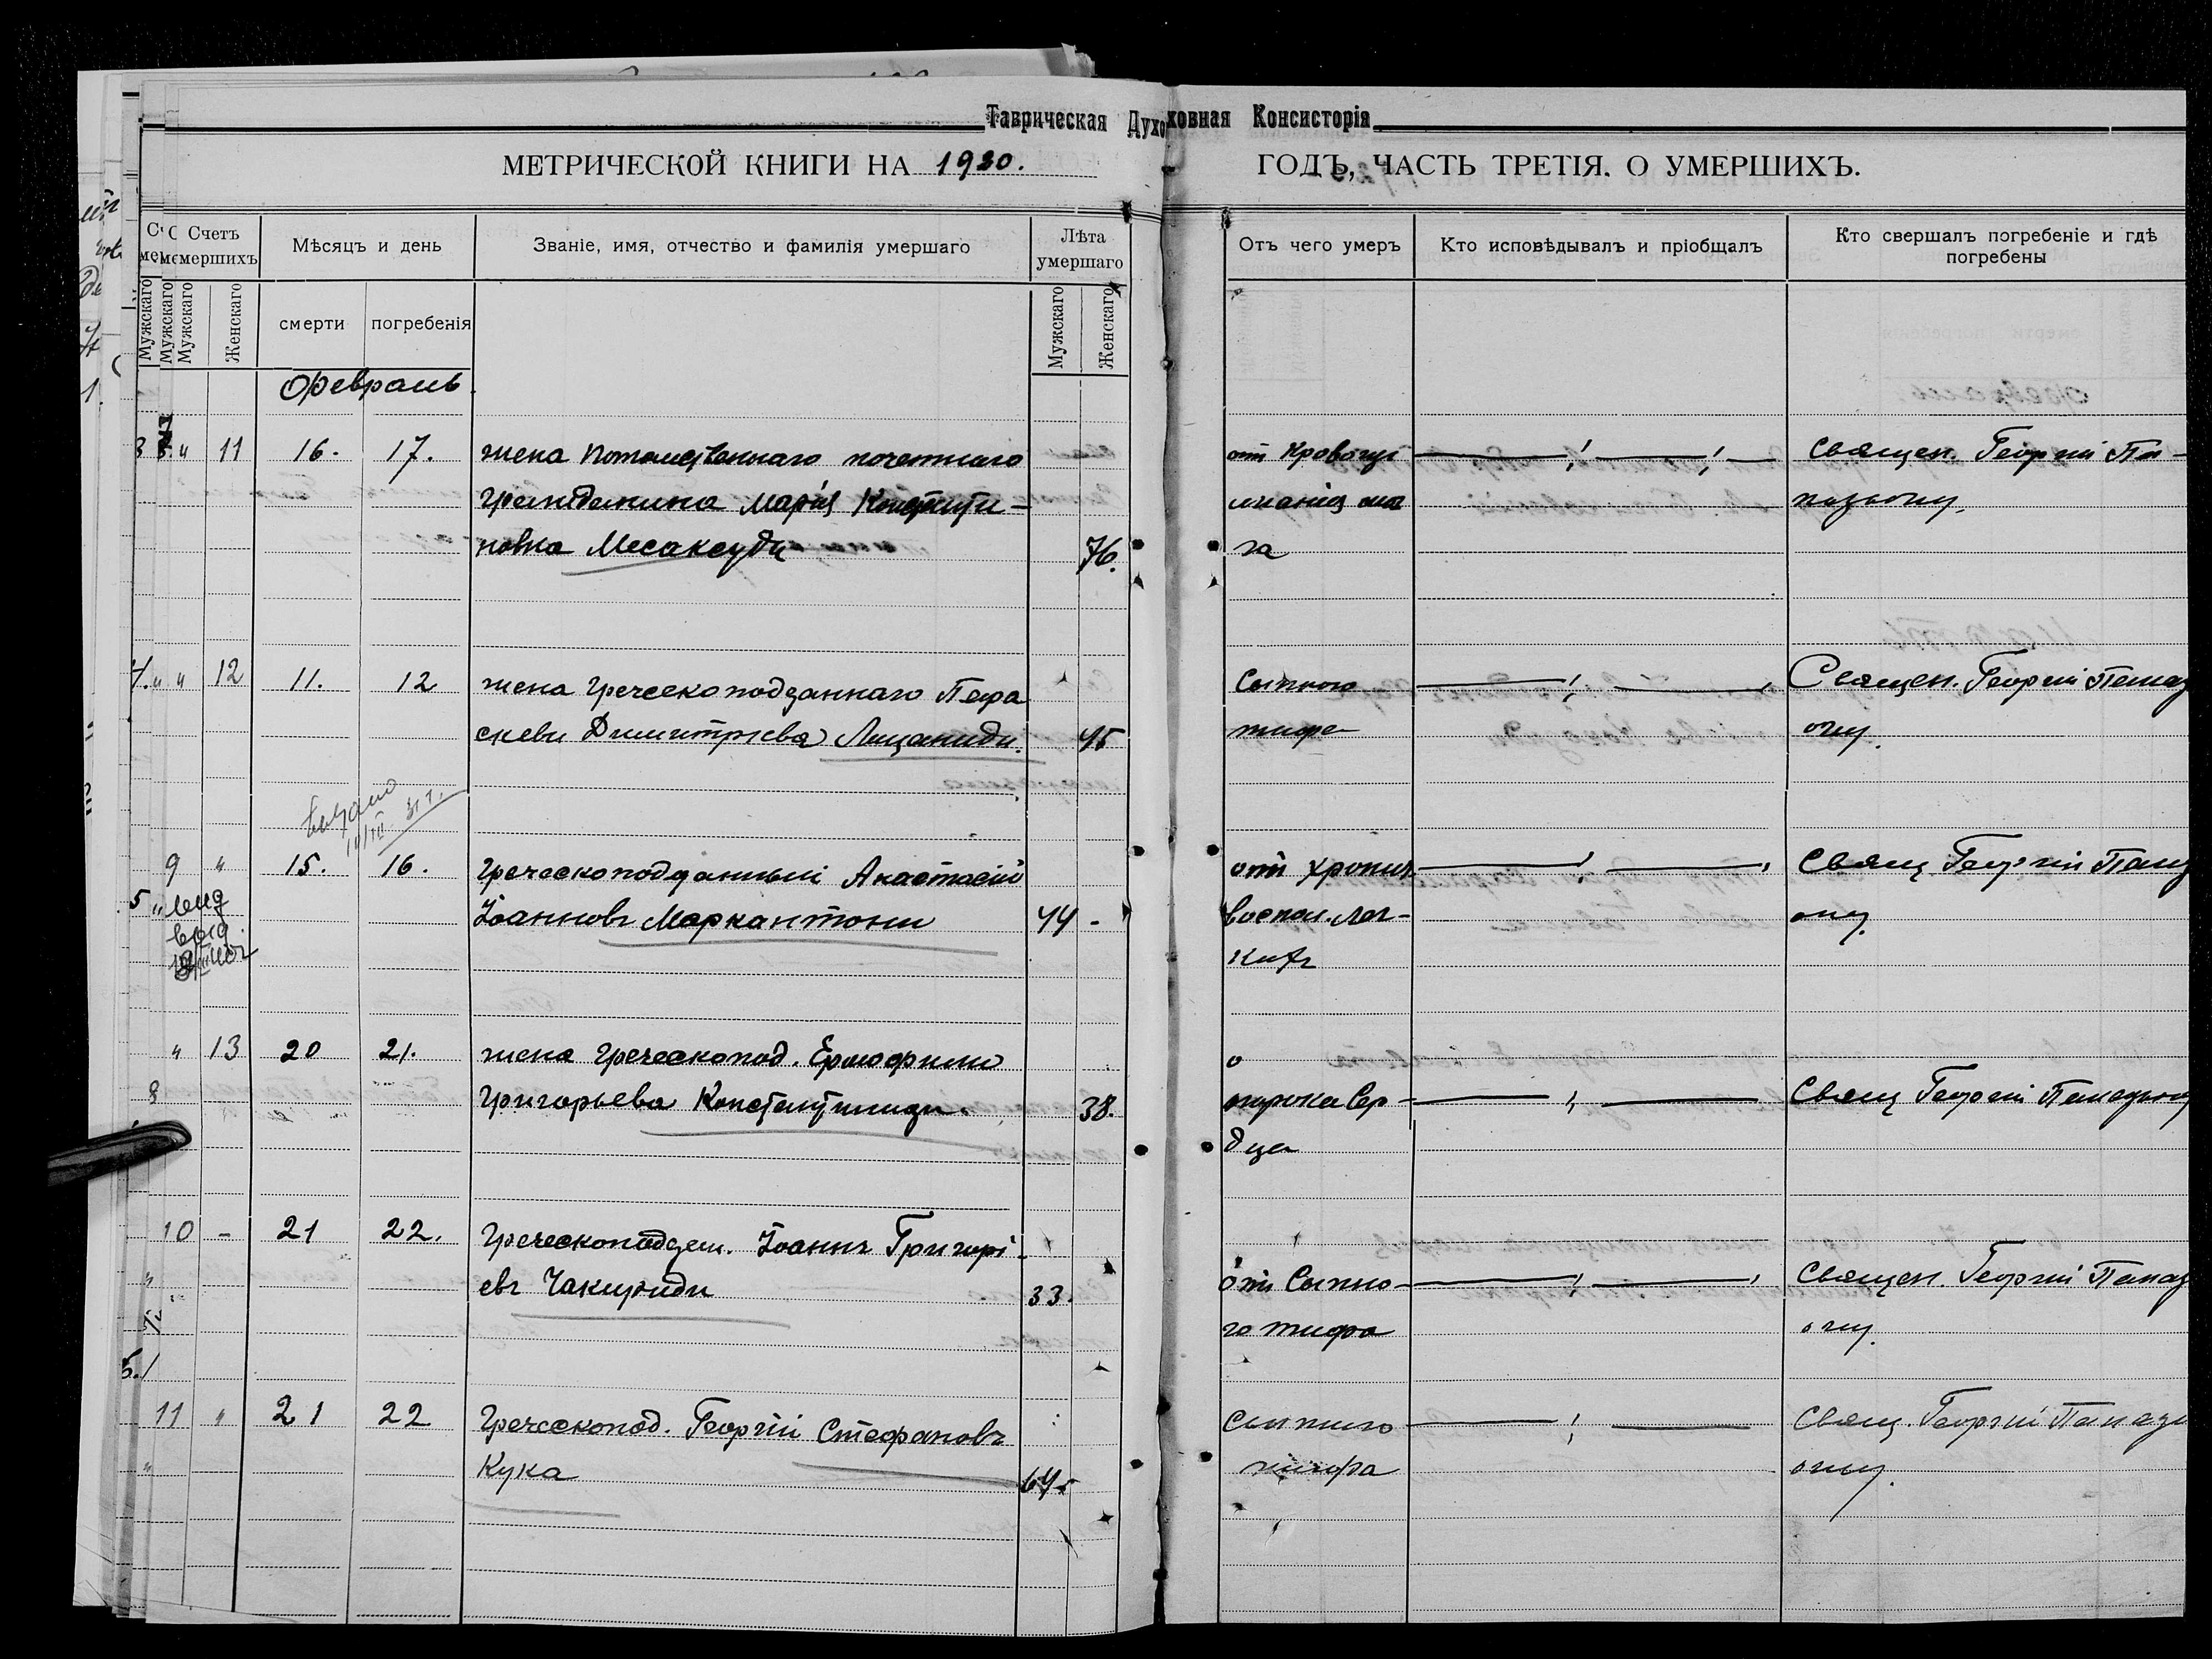 Таврическая Духовная Консисторія
МЕТРИЧЕСКОЙ КНИГИ НА 1920. ГОДЪ, ЧАСТЬ ТРЕТІЯ. О УМЕРШИХЪ.
Счетъ умершихъ
Мужскаго
Женскаго
Мѣсяцъ и день
смерти
погребенія
Званіе, имя, отчество и фамилія умершаго
Лѣта умершаго
Мужскаго
Женскаго
Отъ чего умеръ
Кто исповѣдывалъ и пріобщалъ
Кто свершалъ погребеніе и гдѣ погребены
Февраль.
" 11 16. 17. жена потомственнаго почетнаго
гражданина Марія Константи-
новна Месаксуди 76.
от Кровоизл
іянія моз
га
Священ. Георгій Па-
назіону.
" 12 11. 12 жена греческоподданнаго Пара
скева Димитріева Лицаниди. 45
Сыпного
тифа
Священ. Георгій Панаг
іону.
выдано
9 " 15. 16. Греческоподданный Анастасій
Іоанновъ Маркантони 44 -
выд
отъ хронич
воспал. лег-
кихъ
Свящ Георгій Панаг
іону.
" 13 20 21. жена греческопод.
Григорьева Константиниди. 38.
порока Сер-
дца
Свящ Георгій
10 - 21 22. Греческоподдан. Іоаннъ Григорі-
евъ Чакириди 33.
отъ Сыпно-
го тифа
Священ. Георгій Панаг
іону.
11 " 21 22 Греческопод. Георгій Стефановъ
Кука 64.
Сыпного
тифа
Свящ. Георгій